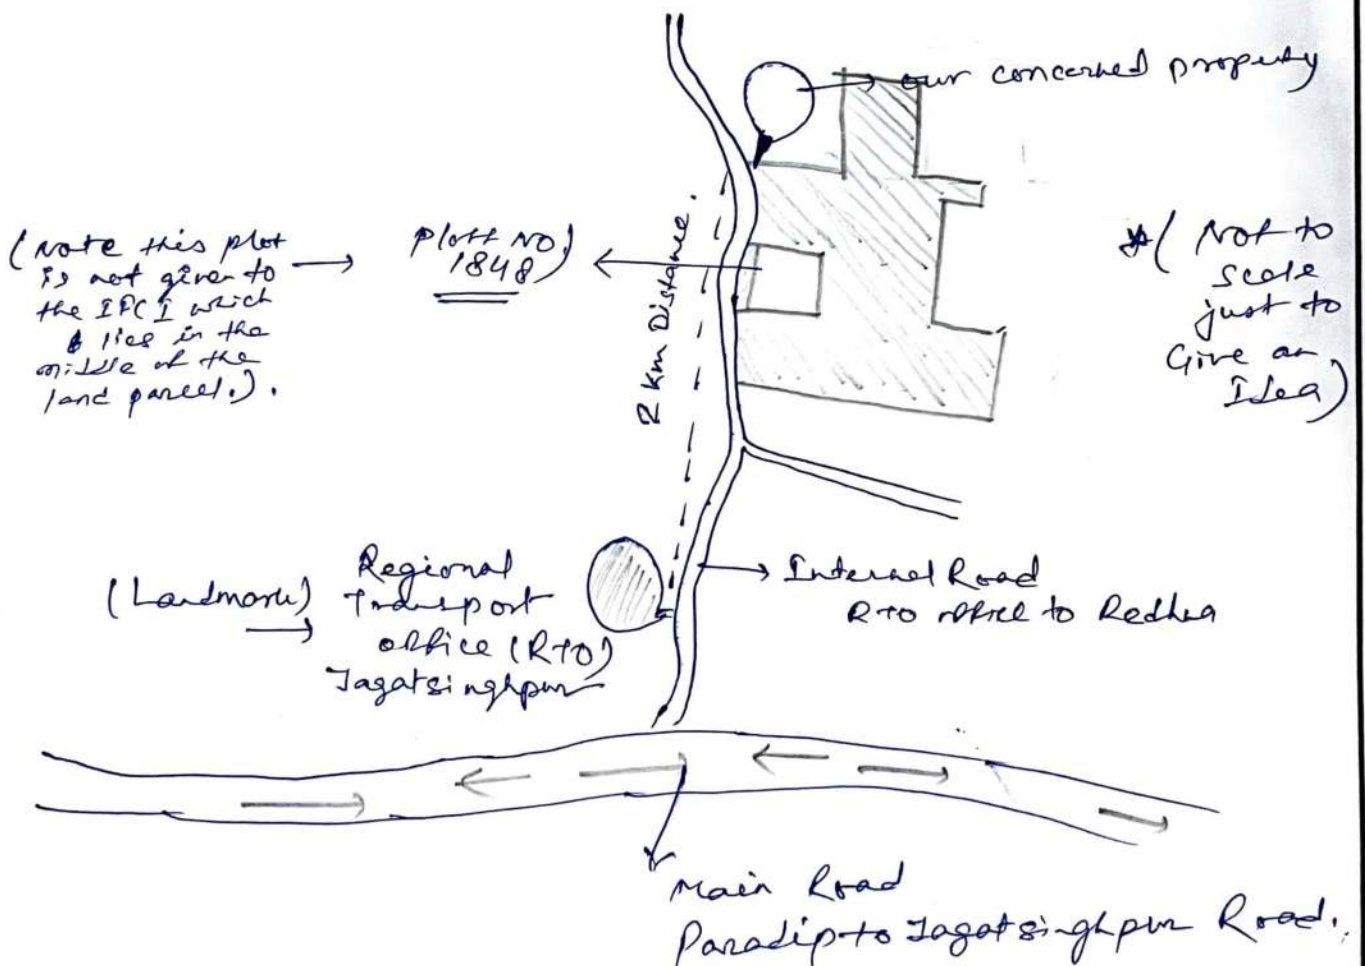 our concerned property
(Note this plot
is not given to
the IFCI which
lies in the
middle of the
land parcel.).
Plott NO)
1848
2 km Distance.
*( Not to
scale
just to
Give an
Idea)
(Landmark)
Regional
Transport
office (RTO)
Jagatsinghpur
Internal Road
RTO office to Redhua
Main Road
Paradip to Jagatsinghpur Road.